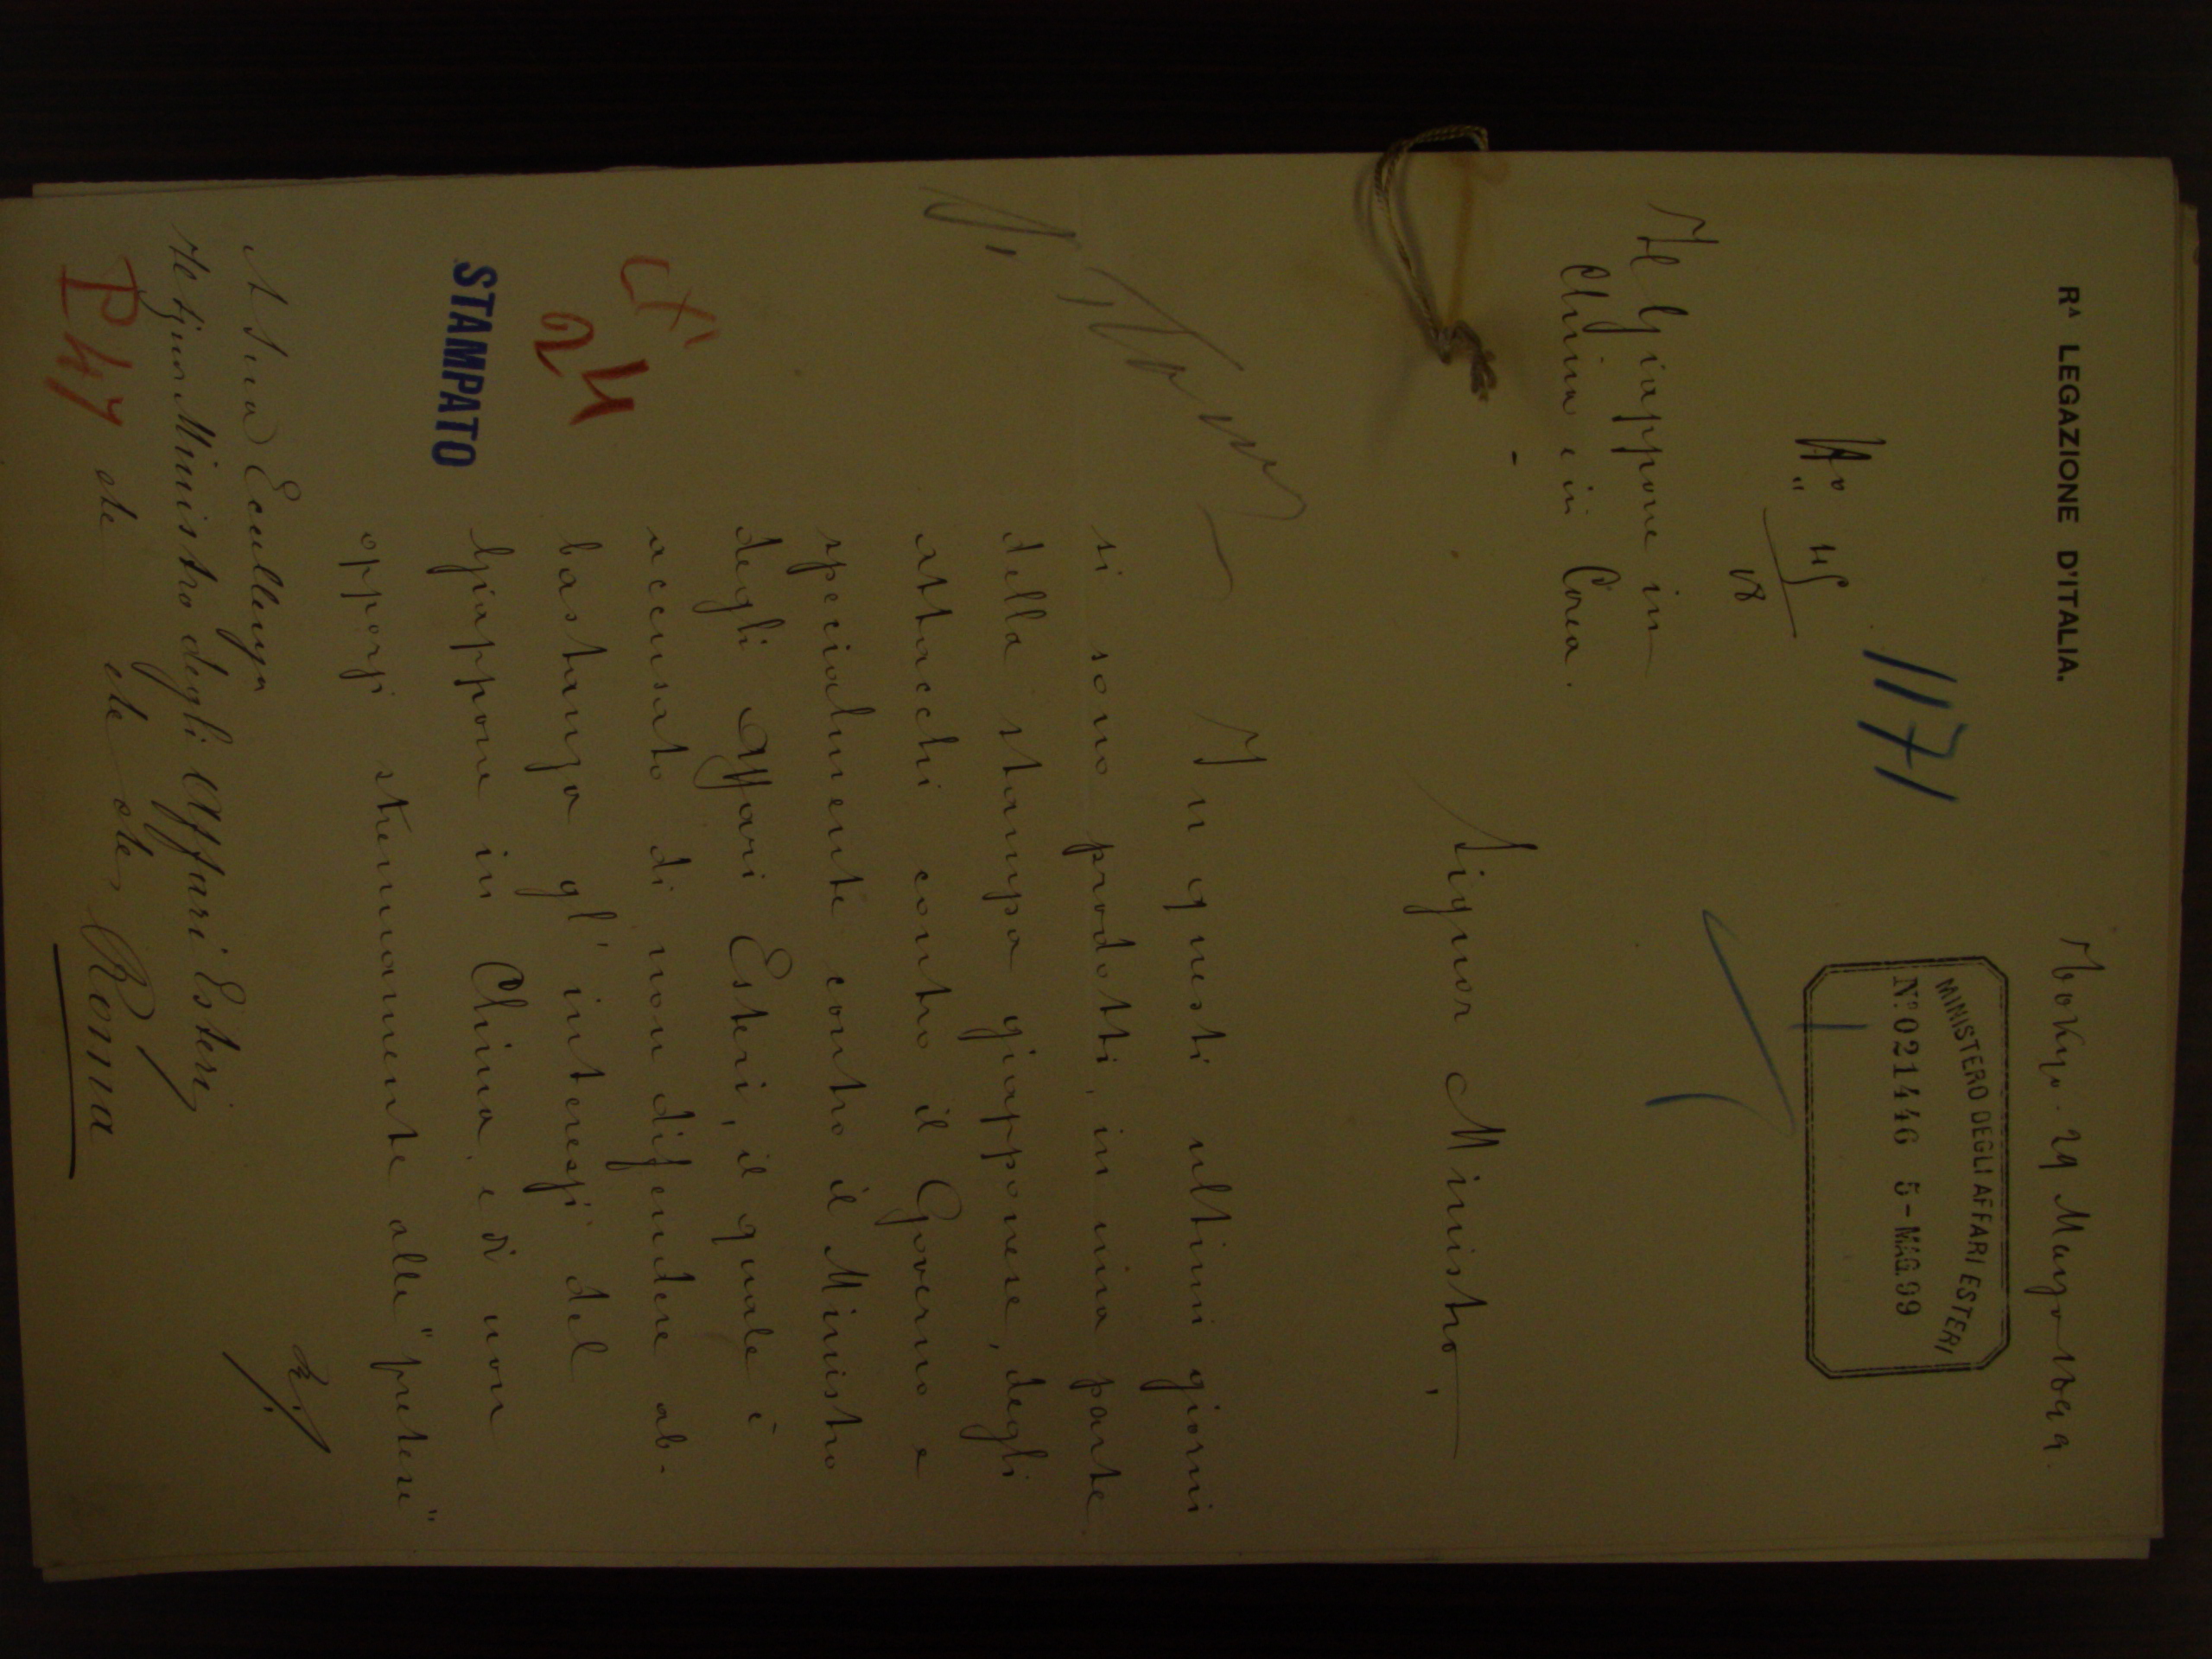 Rᴬ LEGAZIONE D'ITALIA.
Tokyo. 29 Marzo 1899.
1171
MINISTERO DEGLI AFFARI ESTERI
Nº 021446 5-MAG.99
Il Giappone in
China e in Corea.
Signor Ministro,
In questi ultimi giorni
si sono prodotti, in una parte
della stampa giapponese, degli
attacchi contro il Governo e
specialmente contro il Ministro
degli Affari Esteri, il quale è
accusato di non difendere ab-
bastanza gl'interessi del
Giappone in China, e di non
opporsi strenuamente alle "pretese"
24
STAMPATO
A Sua Eccellenza
Il Signor Ministro degli Affari Esteri
P 47 etc etc etc, Roma